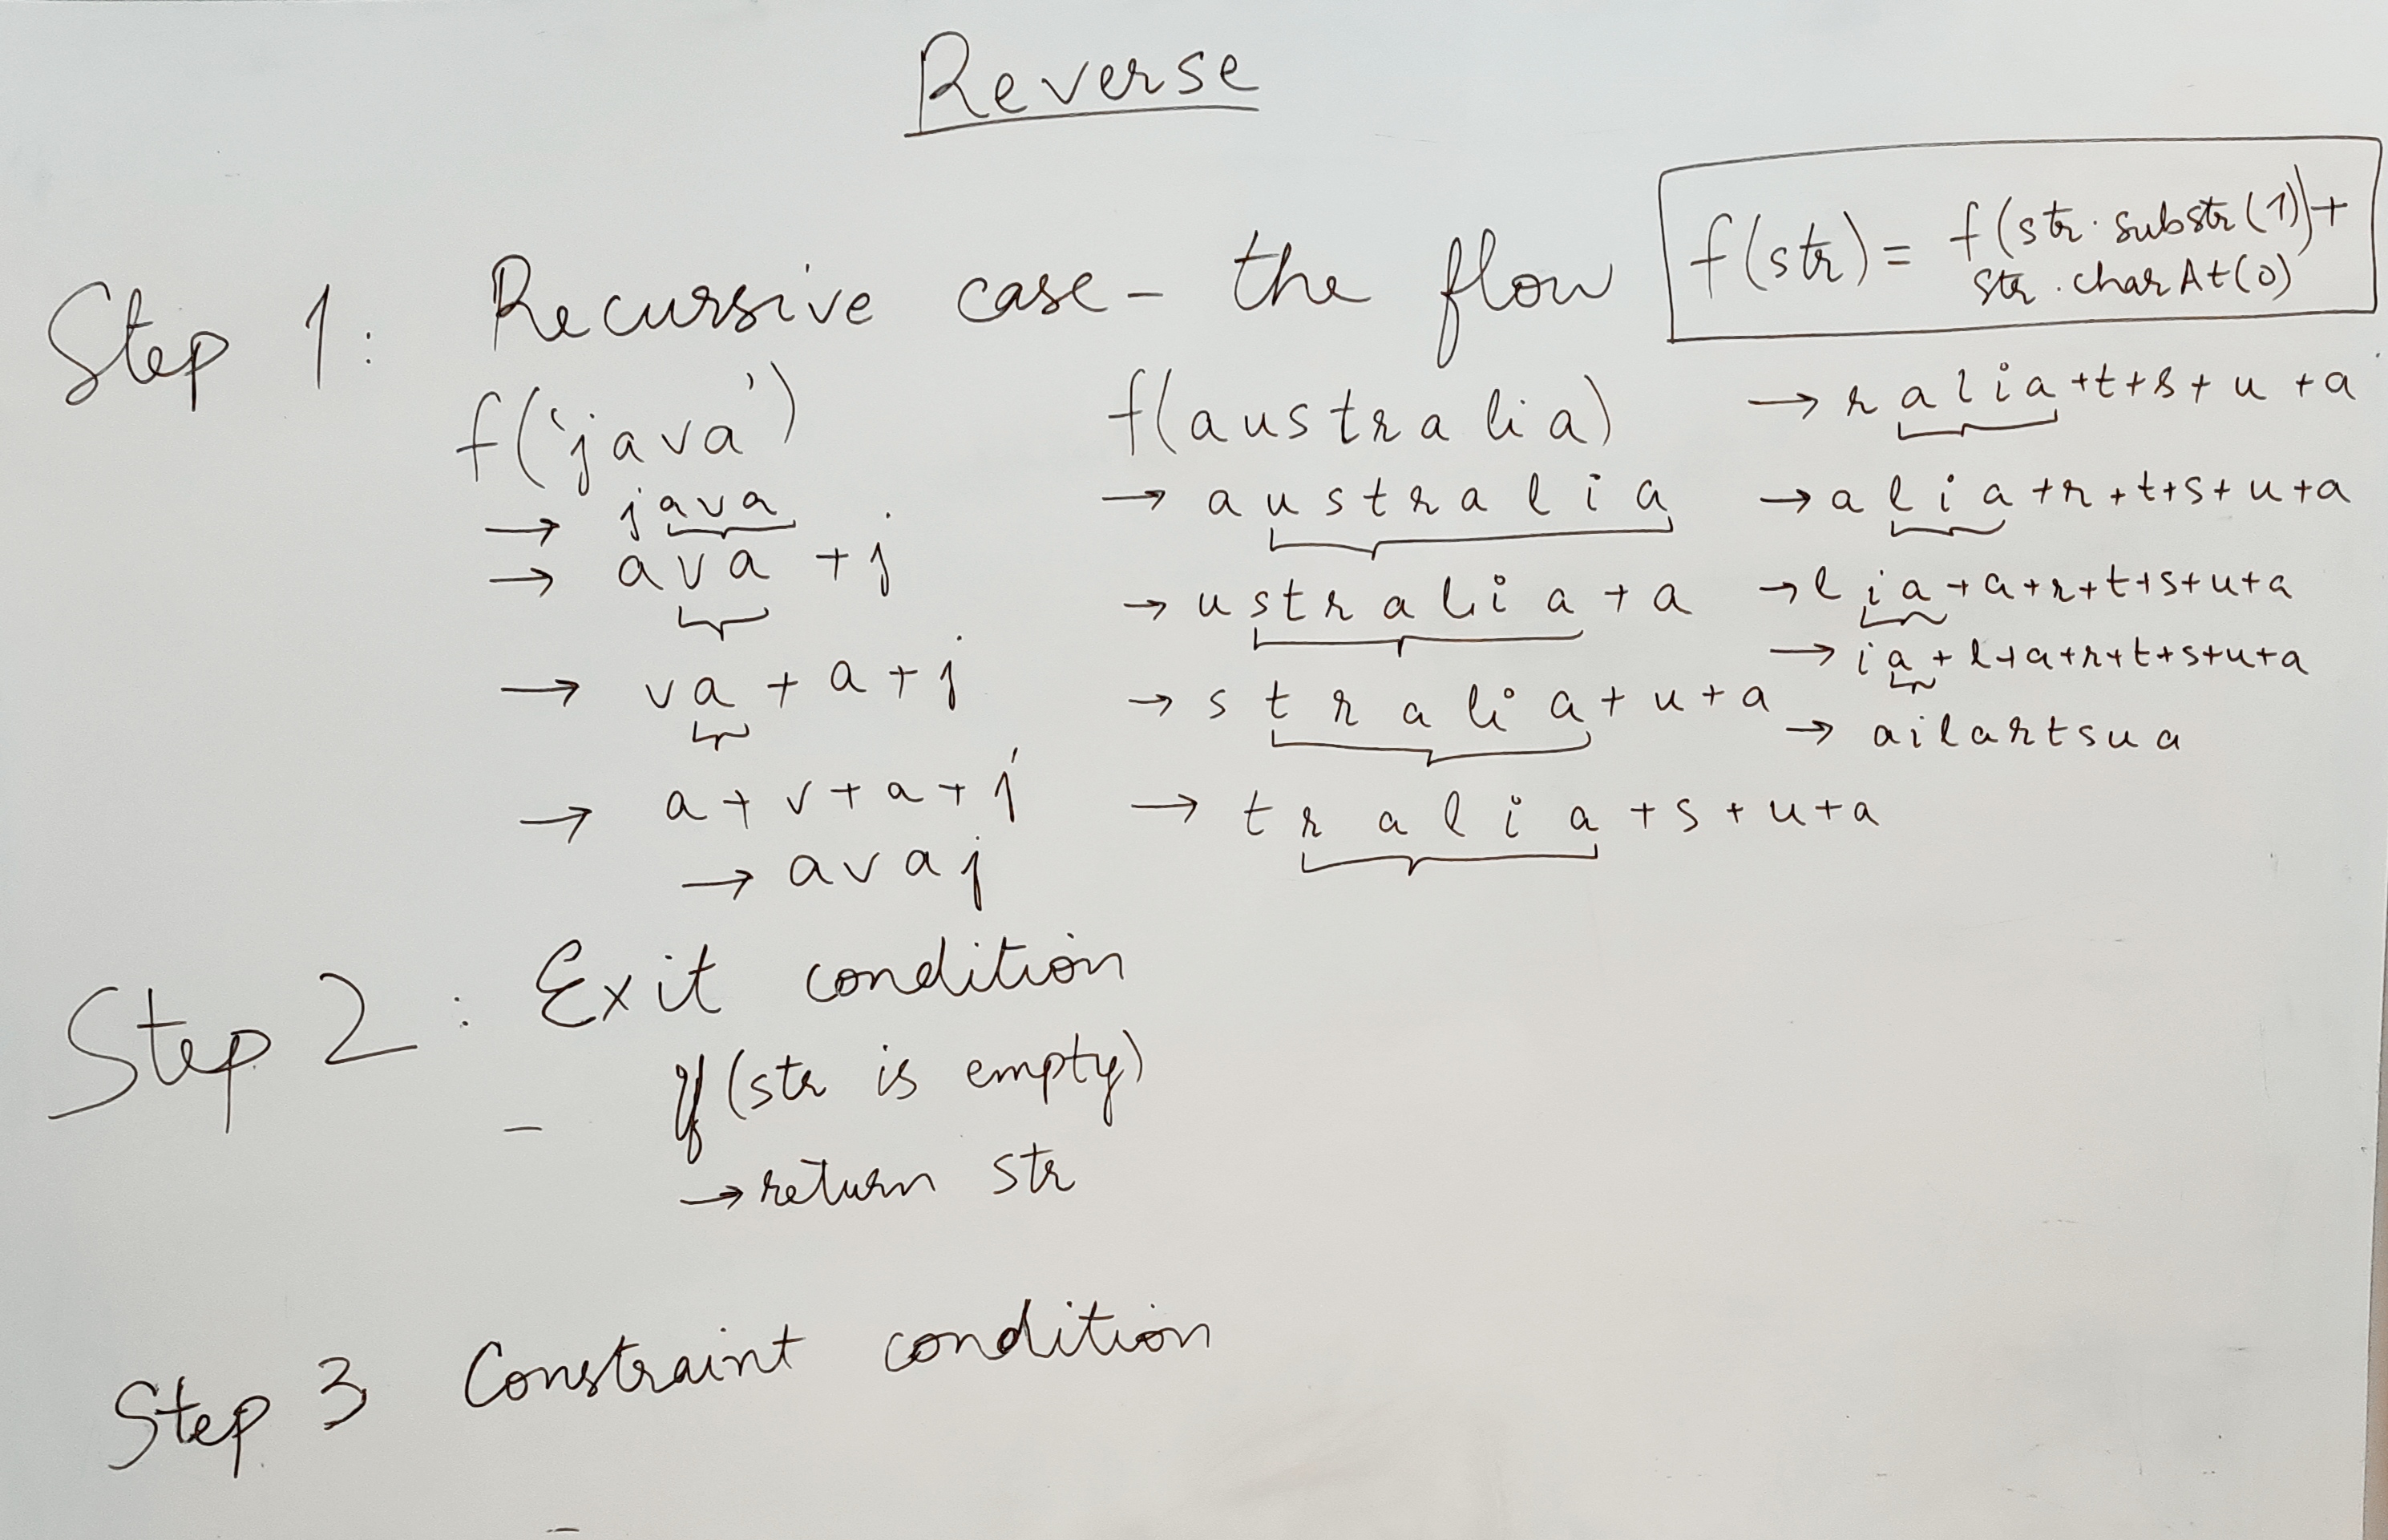 Reverse
Step 1: Recursive case - the flow
f(str) = f(str.substr(1)) +
str.charAt(0)
f('java')
→ java
→ ava + j
→ va + a + j
→ a + v + a + j
→ avaj
f(australia)
→ australia
→ ustralia + a
→ stralia + u + a
→ tralia + s + u + a
→ ralia + t + s + u + a
→ alia + r + t + s + u + a
→ lia + a + r + t + s + u + a
→ ia + l + a + r + t + s + u + a
→ ailartsua
Step 2: Exit condition
- if (str is empty)
→ return str
Step 3 Constraint condition
-